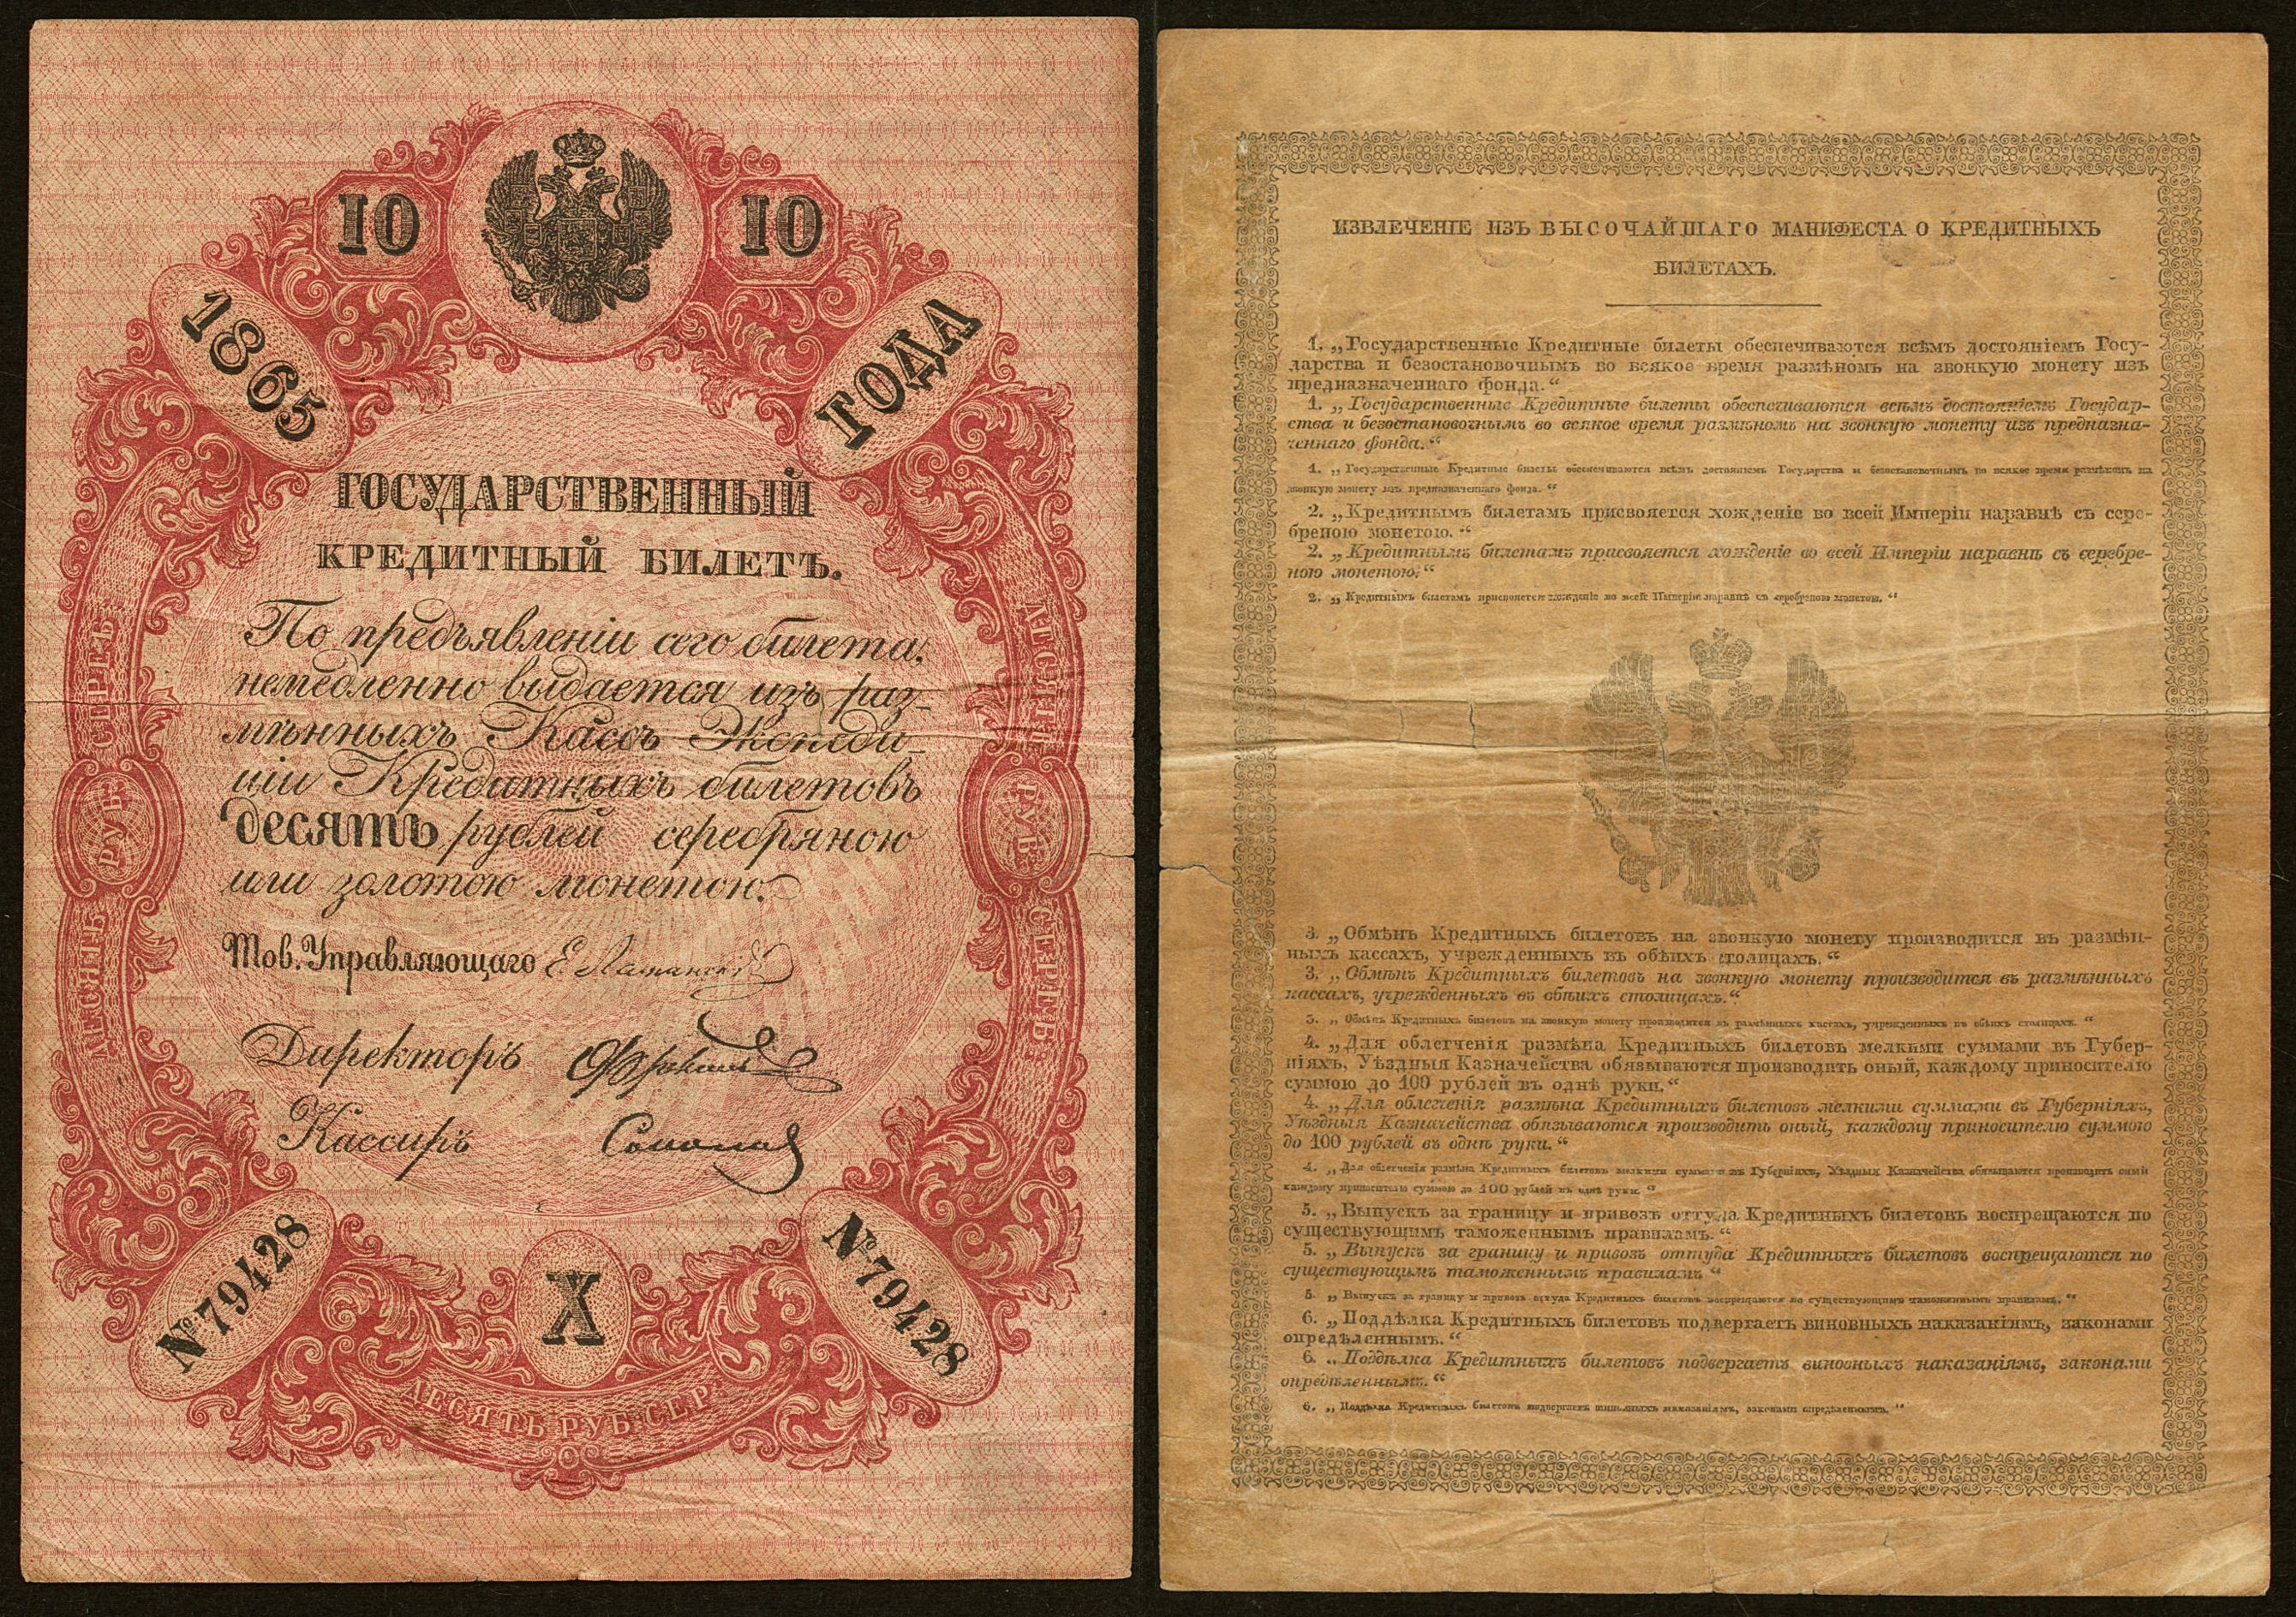 10 10
1865 ГОДА
ГОСУДАРСТВЕННЫЙ
КРЕДИТНЫЙ БИЛЕТЪ.
По предъявленіи сего билета,
немедленно выдается изъ раз-
мѣнныхъ Кассъ Экспеди-
ціи Кредитныхъ билетовъ
десять рублей серебряною
или золотою монетою.
Тов. Управляющаго Е. Ламанскій
Директоръ
Кассиръ
ДЕСЯТЬ РУБ. СЕРЕБ.
ДЕСЯТЬ РУБ. СЕРЕБ.
№ 79428 № 79428
X
ДЕСЯТЬ РУБ. СЕР.
ИЗВЛЕЧЕНІЕ ИЗЪ ВЫСОЧАЙШАГО МАНИФЕСТА О КРЕДИТНЫХЪ
БИЛЕТАХЪ.
1. „Государственные Кредитные билеты обеспечиваются всѣмъ достояніемъ Госу-
дарства и безостановочнымъ во всякое время размѣномъ на звонкую монету изъ
предназначеннаго фонда.“
1. „Государственные Кредитные билеты обеспечиваются всѣмъ достояніемъ Государ-
ства и безостановочнымъ во всякое время размѣномъ на звонкую монету изъ предназна-
ченнаго фонда.“
1. „Государственные Кредитные билеты обеспечиваются всѣмъ достояніемъ Государства и безостановочнымъ во всякое время размѣномъ на
звонкую монету изъ предназначеннаго фонда.“
2. „Кредитнымъ билетамъ присвояется хожденіе во всей Имперіи наравнѣ съ сере-
бреною монетою.“
2. „Кредитнымъ билетамъ присвояется хожденіе во всей Имперіи наравнѣ съ серебре-
ною монетою.“
2. „Кредитнымъ билетамъ присвояется хожденіе во всей Имперіи наравнѣ съ серебреною монетою.“
3. „Обмѣнъ Кредитныхъ билетовъ на звонкую монету производится въ размѣн-
ныхъ кассахъ, учрежденныхъ въ обѣихъ столицахъ.“
3. „Обмѣнъ Кредитныхъ билетовъ на звонкую монету производится въ размѣнныхъ
кассахъ, учрежденныхъ въ обѣихъ столицахъ.“
3. „Обмѣнъ Кредитныхъ билетовъ на звонкую монету производится въ размѣнныхъ кассахъ, учрежденныхъ въ обѣихъ столицахъ.“
4. „Для облегченія размѣна Кредитныхъ билетовъ мелкими суммами въ Губер-
ніяхъ, Уѣздныя Казначейства обязываются производить оный, каждому приносителю
суммою до 100 рублей въ однѣ руки.“
4. „Для облегченія размѣна Кредитныхъ билетовъ мелкими суммами въ Губерніяхъ,
Уѣздныя Казначейства обязываются производить оный, каждому приносителю суммою
до 100 рублей въ однѣ руки.“
4. „Для облегченія размѣна Кредитныхъ билетовъ мелкими суммами въ Губерніяхъ, Уѣздныя Казначейства обязываются производить оный
каждому приносителю суммою до 100 рублей въ однѣ руки.“
5. „Выпускъ за границу и привозъ оттуда Кредитныхъ билетовъ воспрещаются по
существующимъ таможеннымъ правиламъ.“
5. „Выпускъ за границу и привозъ оттуда Кредитныхъ билетовъ воспрещаются по
существующимъ таможеннымъ правиламъ“
5. „Выпускъ за границу и привозъ оттуда Кредитныхъ билетовъ воспрещаются по существующимъ таможеннымъ правиламъ.“
6. „Поддѣлка Кредитныхъ билетовъ подвергаетъ виновныхъ наказаніямъ, законами
опредѣленнымъ.“
6. „Поддѣлка Кредитныхъ билетовъ подвергаетъ виновныхъ наказаніямъ, законами
опредѣленнымъ.“
6. „Поддѣлка Кредитныхъ билетовъ подвергаетъ виновныхъ наказаніямъ, законами опредѣленнымъ.“